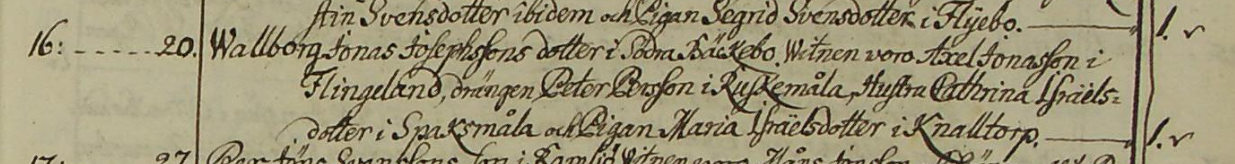 stin Svensdotter ibidem och Pigan Segrid Svensdotter i Flyebo. 1. r
16: ----- 20. Wallborg Jonas Josephssons dotter i Södra Bäckebo. Witnen woro Axel Jonasson i
Flingeland, drängen Peter Persson i Ruskemåla, Hustru Cathrina Israëls=
dotter i Spaksmåla och Pigan Maria Israëlsdotter i Knalltorp. 1. r
17: 27